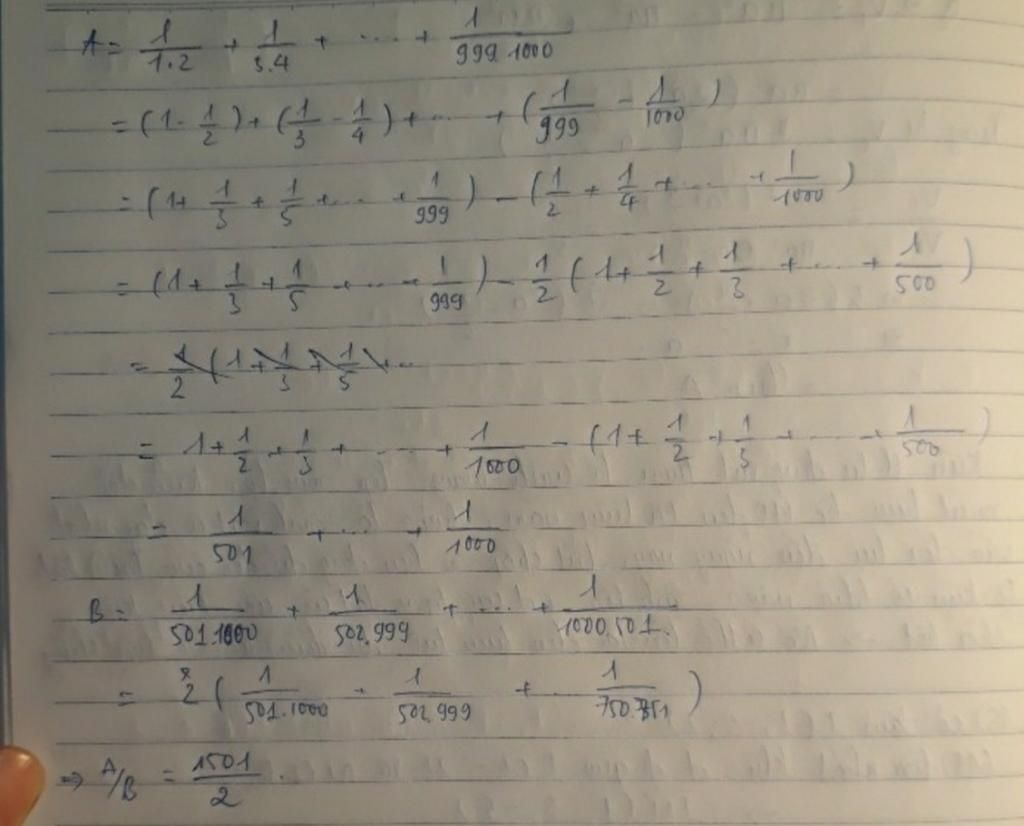 A = 1/1.2 + 1/3.4 + .... + 1/999.1000
= (1 - 1/2) + (1/3 - 1/4) + ... + (1/999 - 1/1000)
= (1 + 1/3 + 1/5 + ... + 1/999) - (1/2 + 1/4 + ... + 1/1000)
= (1 + 1/3 + 1/5 + ... + 1/999) - 1/2 (1 + 1/2 + 1/3 + ... + 1/500)
= 1/2 (1 + 1/3 + 1/5 + ...
= 1 + 1/2 + 1/3 + .... + 1/1000 - (1 + 1/2 + 1/3 + ... + 1/500)
= 1/501 + ... + 1/1000
B = 1/501.1000 + 1/502.999 + ... + 1/1000.501.
= 2 (1/501.1000 + 1/502.999 + ... 1/750.751)
⇒ A/B = 1501/2.